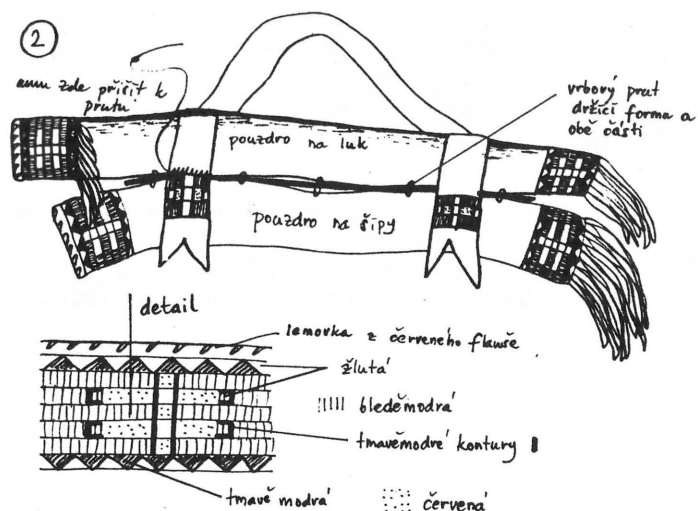 2
zde přišít k
prutu
vrbový prut
držící forma a
obě části
pouzdro na luk
pouzdro na šípy
detail
lemovka z červeného flauše
žlutá
bleděmodrá
tmavěmodré kontury
tmavě modrá
červená